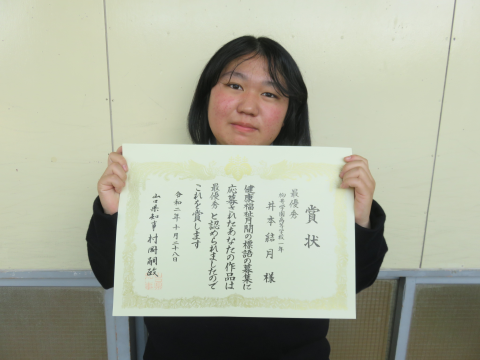 賞状
最優秀
柳井学園高等学校一年
井本結月 様
健康福祉月間の標語の募集に
応募されたあなたの作品は
最優秀と認められましたので
これを賞します
令和二年十月二十八日
山口県知事 村岡嗣政